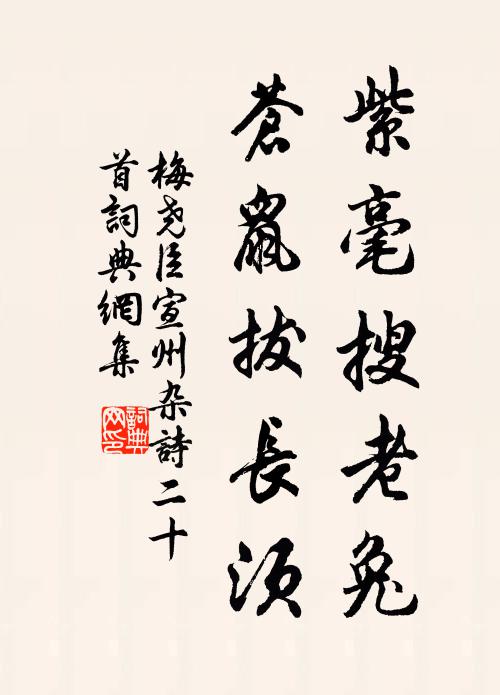 紫毫搜老兔
蒼鼠拔長須
梅尧臣宣州杂詩二十
首詞典網集
詞典网印